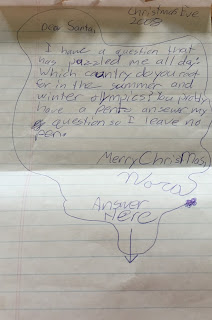 Christmas Eve
2008
Dear Santa,
I have a question that
has puzzled me all day.
Which country do you root
for in the summer and
winter olympics? You probly
have a pen to answer my
question so I leave no
pen.
Merry Christmas,
Nora
Answer
Here